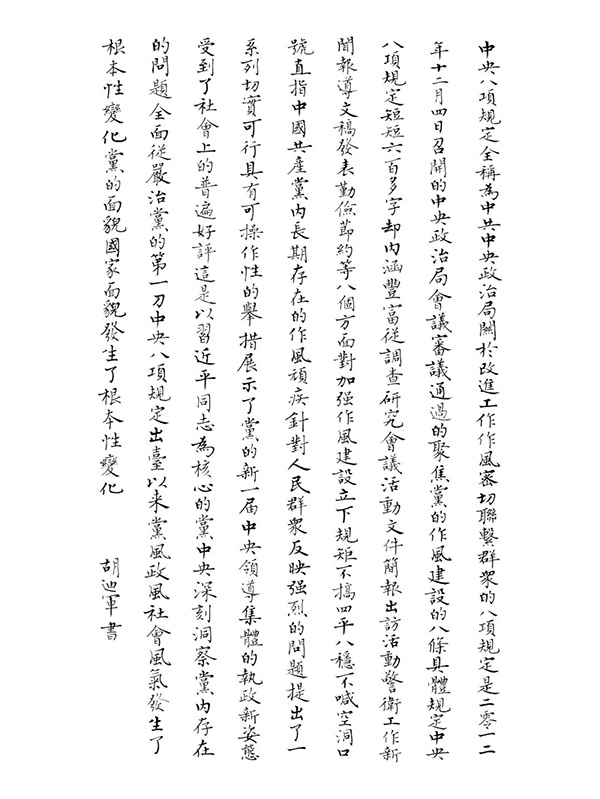 中央八項規定全稱為中共中央政治局關於改進工作作風密切聯繫群衆的八項規定是二零一二
年十二月四日召開的中央政治局會議審議通過的聚焦黨的作風建設的八條具體規定中央
八項規定短短六百多字却内涵豐富從調查研究會議活動文件簡報出訪活動警衛工作新
聞報導文稿發表勤儉節約等八個方面對加强作風建設立下規矩不搞四平八穩不喊空洞口
號直指中國共産黨内長期存在的作風頑疾針對人民群衆反映强烈的問題提出了一
系列切實可行具有可操作性的舉措展示了黨的新一届中央領導集體的執政新姿態
受到了社會上的普遍好評這是以習近平同志為核心的黨中央深刻洞察黨内存在
的問題全面從嚴治黨的第一刀中央八項規定出臺以来黨風政風社會風氣發生了
根本性變化黨的面貌國家面貌發生了根本性變化 胡迎軍書